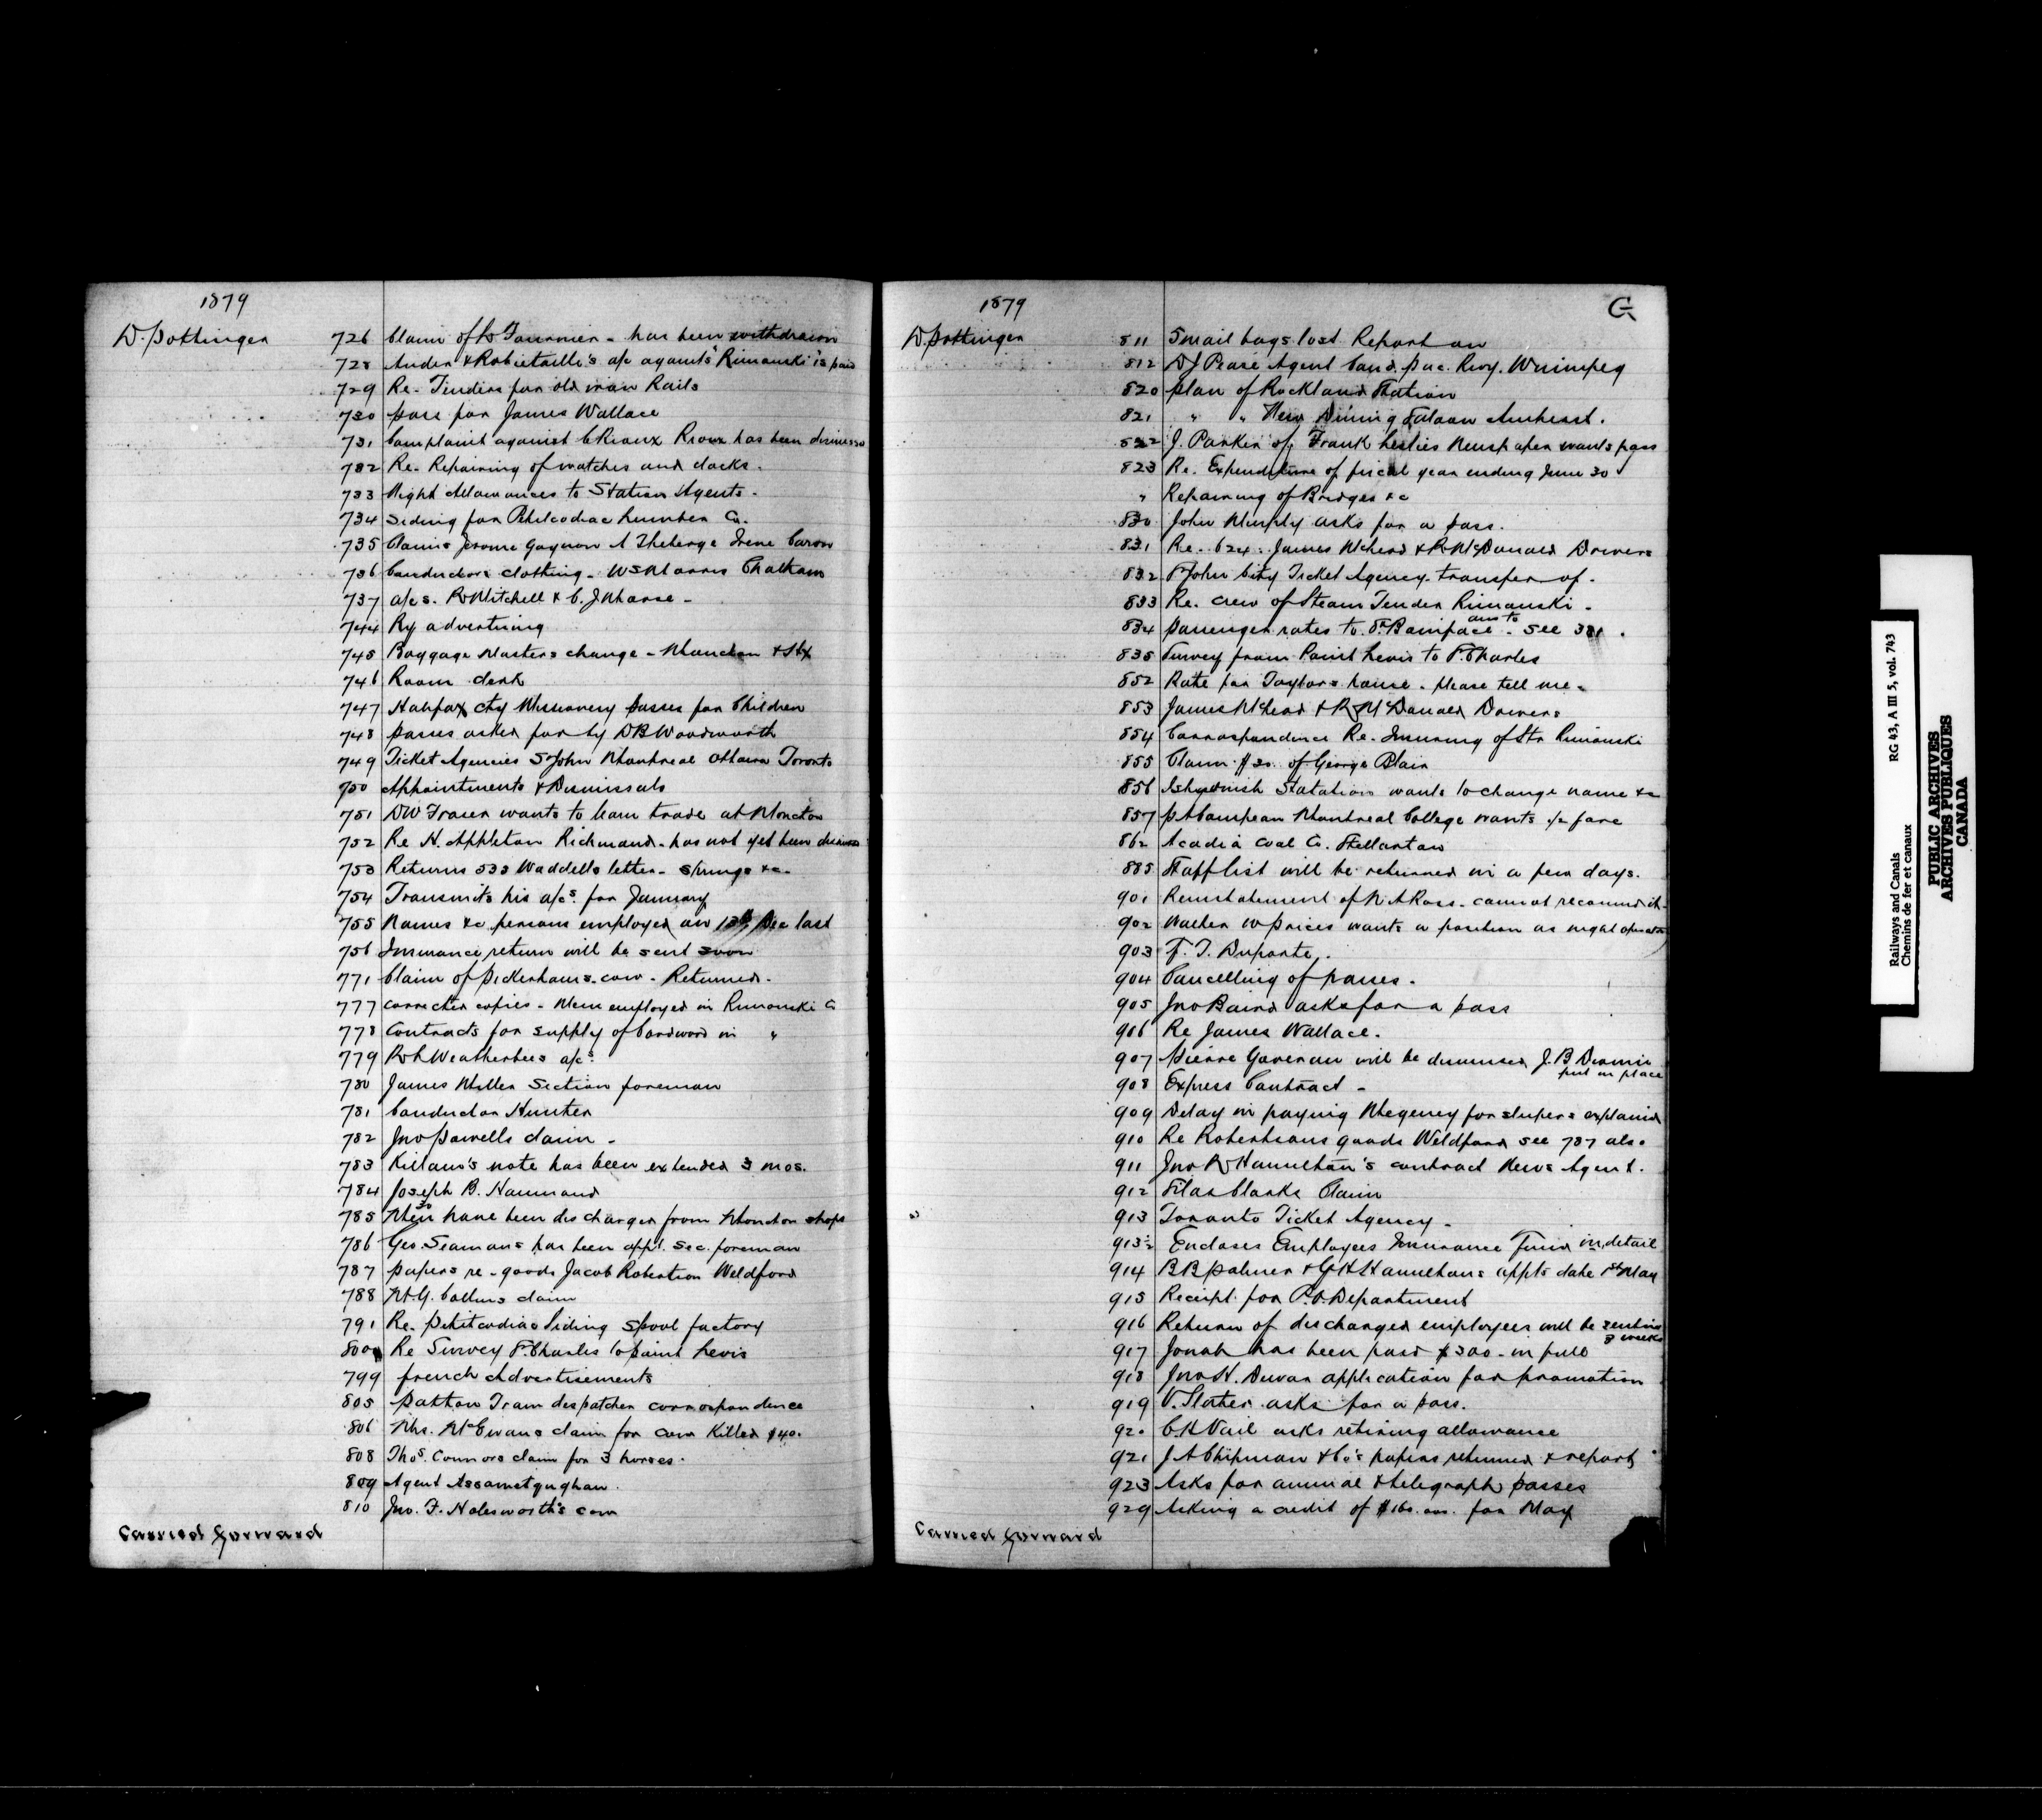 1879
D. Pottinger
726 Claim of Fournier - has been withdrawn
728 Audet & Robietaille's a/c against "Rimouski" is paid
729 Re. Tenders for old iron Rails
730 pass for James Wallace
731 Complaint against C Rioux Rioux has been dismissed
732 Re. Repairing of watches and clocks.
733 Night Allowances to Station Agents.
734 Siding for Petitcodiac Lumber Co.
735 Claims Jerome Gagnon A Theberge Irene Caron
736 Conductors clothing - W S Morris Chatham
737 a/cs. R Mitchell & C. J
744 Ry advertising
745 Baggage Masters change - Moncton & Hx
746 Room clerk
747 Halifax City Missionery passes for Children
748 passes asked for by D B Woodworth
749 Ticket Agencies St John Montreal Ottawa Toronto
750 Appointments & Dismissals
751 D W Fraser wants to learn trade at Moncton
752 Re H. Appleton Richmond - has not yet been dismissed
753 Returns 533 Waddells letter - springs &c.
754 Transmits his a/cs. for January
755 Names &c persons employed on 13th Dec last
756 Insurance return will be sent soon
771 Claim of Pickerhams cow - Returned.
777 corrected copies - Men employed in Rimouski Co
778 Contracts for supply of Cordwood in "
779 R L Weatherbees a/cs
780 James Miller Section foreman
781 Conductor Hunter
782 Jno Powells claim -
783 Killam's note has been extended 3 mos.
784 Joseph B. Hammond
785 30 Men have been discharged from Moncton shops
786 Geo. Seamans has been appt. sec. foreman
787 papers re - goods Jacob Robertson Weldford
788 W. G. Collins claim
791 Re. Petitcodiac Siding Spool factory
800 Re Survey St. Charles to point Levis
799 french Advertisements
805 Patton Train despatcher correspondence
806 Mrs. McEwans claim for cow Killed $40.
808 Thos. Connors claim for 3 horses.
809 Agent Assametquaghan.
810 Jno. F. Holesworth's cow
Carried forward
1879
G
D. Pottinger
811 5 mail bags lost Report on
812 D J Pease Agent Cand. Pac. Rwy. Winnipeg
820 plan of Rockland Station
821 " " New Dining Saloon Amherst.
822 J. Parker of Frank Leslies Newspaper wants pass
823 Re. Expenditure of fiscal year ending June 30
" Repairing of Bridges &c
830 John Murphy asks for a pass.
831 Re. 624. James McLeod & R McDonald Drivers
832 St John City Ticket Agency transfer of.
833 Re. crew of Steam Tender Rimouski -
834 passenger rates to St. Boniface. ans to see 381.
835 Survey from Point Levis to St. Charles
852 Rate for Taylors house. please tell me.
853 James McLeod & R McDonald Drivers
854 Correspondence Re. Insuring of Str Rimouski
855 Claim $20. of George Blair
856 Station wants to change name &c
857 Montreal College wants 1/2 fare
862 Acadia Coal Co. Stellarton
885 Staff list will be returned in a few days.
901 Reinstatement of N A Ross - cannot recommend it
902 Walter W Prices wants a position as night operator
903 F. T. Duporte.
904 Cancelling of passes.
905 Jno Baird asks for a pass
906 Re James Wallace.
907 Pierre will be dismissed J. B. put in place
908 Express Contract -
909 Delay in paying Megeney for sleepers explained
910 Re Robertsons goods Weldford see 787 also
911 Jno R Hamilton's contract News Agent.
912 Silas Clarks Claim
913 Toronto Ticket Agency -
913 1/2 Encloses Employees Insurance Fund in detail
914 B B Palmer & G H Hamiltons appts date 1st May
915 Receipt for P.O. Department
916 Return of discharged employees will be sent in 3 weeks
917 Jonah has been paid $300 - in full
918 Jno H. Dewar application for promotion
919 V. Slater asks for a pass.
920 C H Vail asks retiring allowance
921 J A Chipman & Co's papers returned & report
923 Asks for annual & telegraph passes
929 Asking a credit of $160.000. for May
Carried forward
Railways and Canals
Chemins de fer et canaux
RG 43, A III 5, vol. 743
PUBLIC ARCHIVES
ARCHIVES PUBLIQUES
CANADA